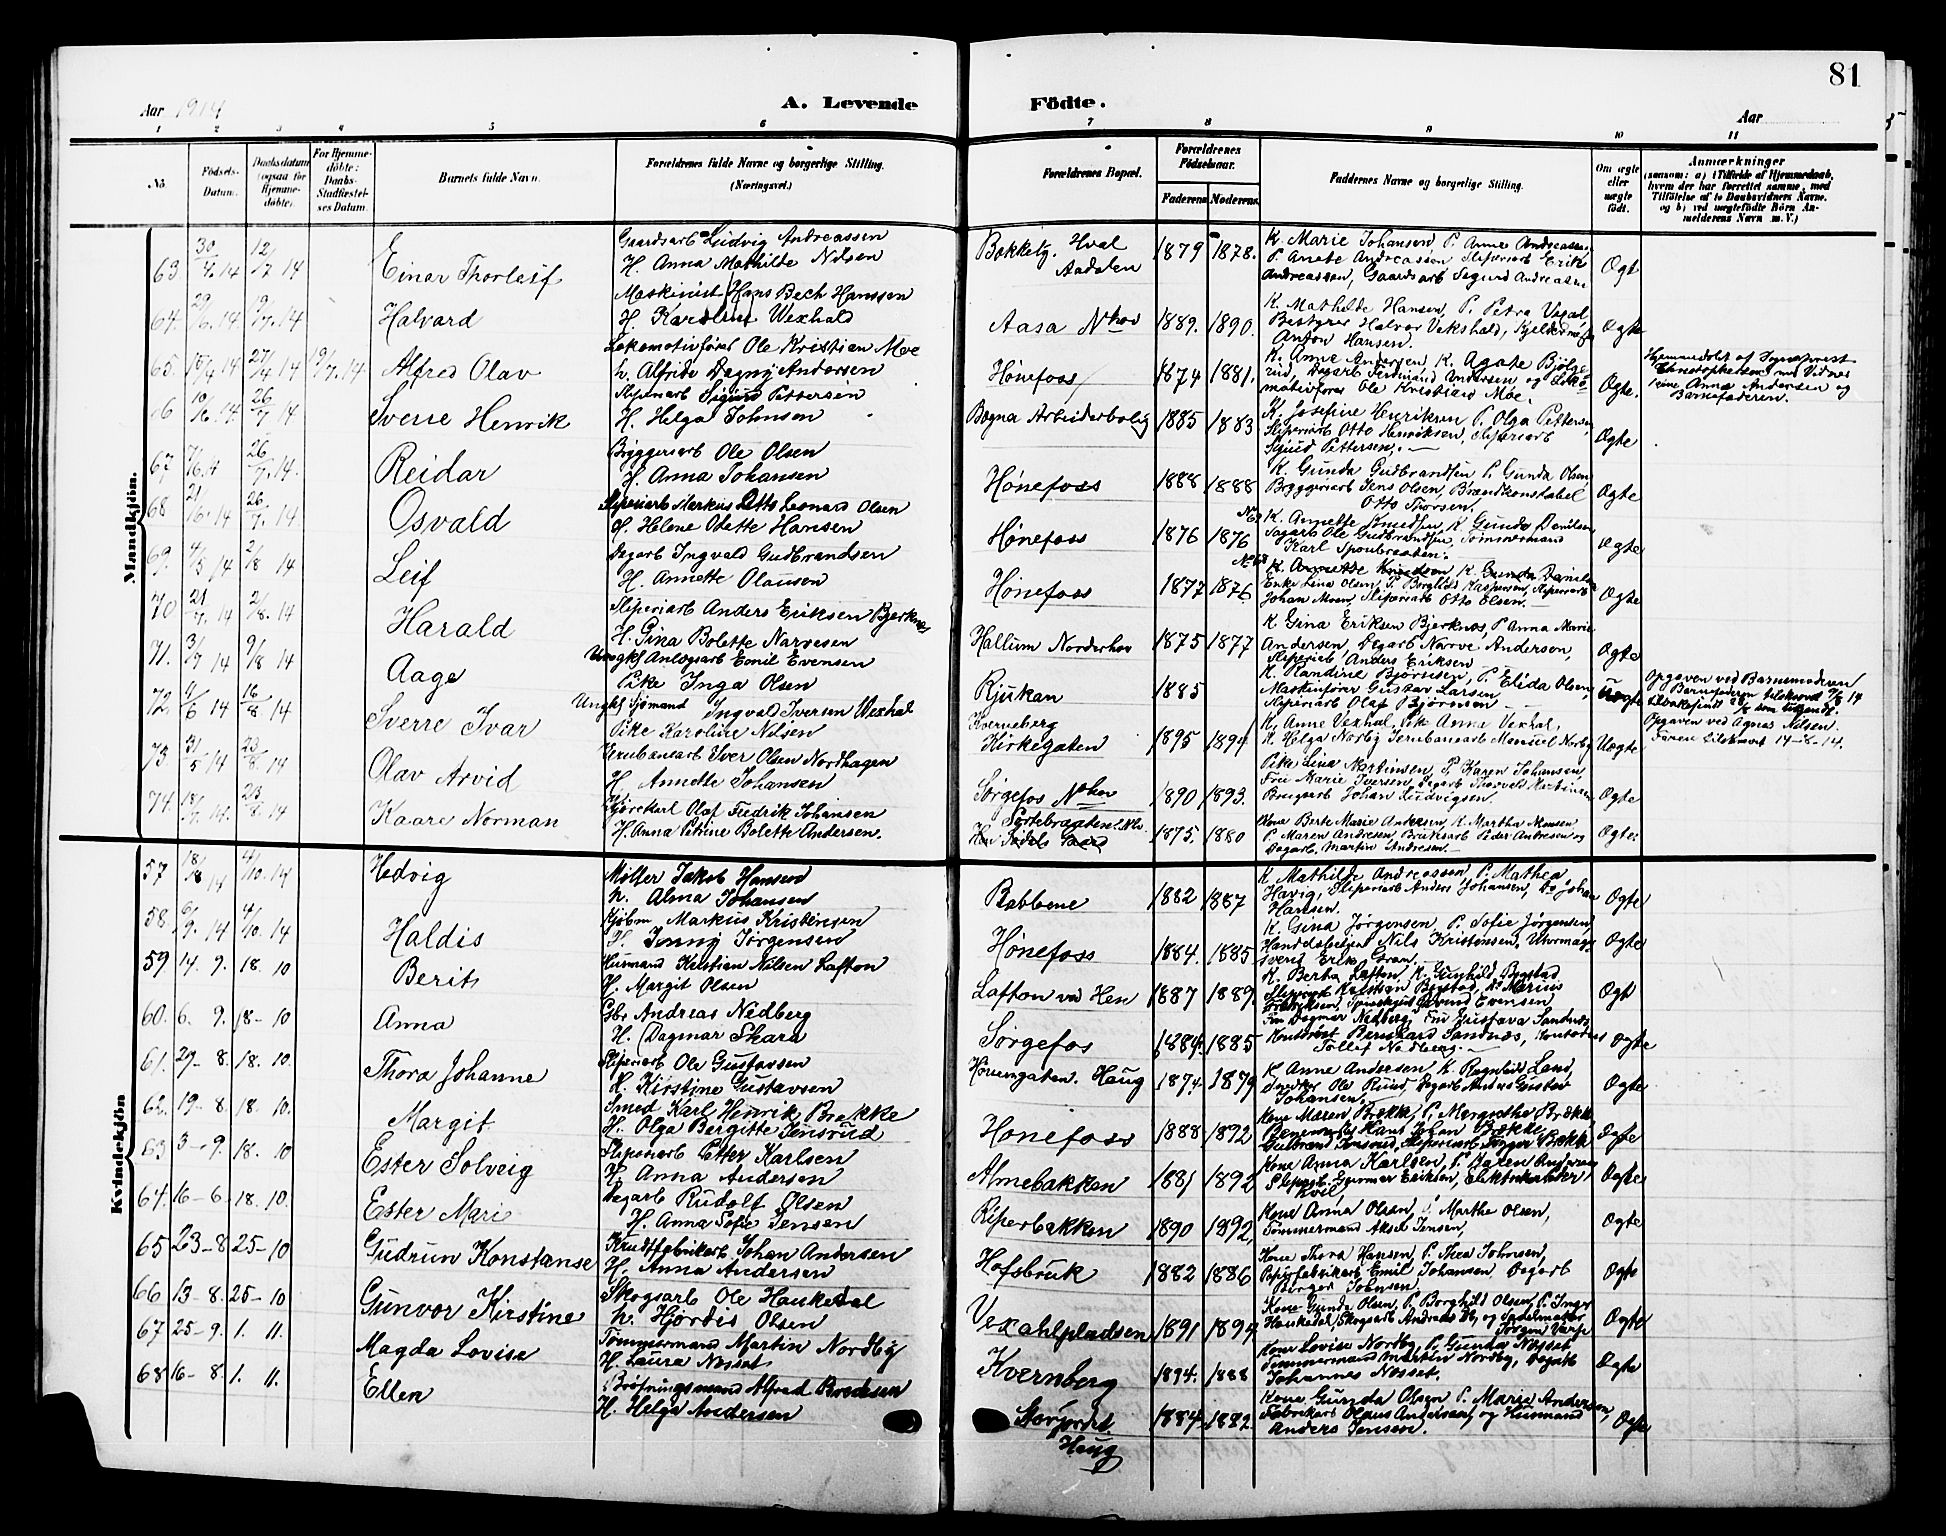 81
Aar 1914
A. Levende Födte.
Aar
1 2 3 4 5 6 7 8 9 10 11
No.
Födsels-Datum.
Daabsdatum (ogsaa for Hjemme-döbte).
For Hjemme-döbte: Daabs-Stadfæstel-ses Datum.
Barnets fulde Navn.
Forældrenes fulde Navne og borgerlige Stilling. (Næringsvei.)
Forældrenes Bopæl.
Forældrenes Födselsaar.
Faderens Moderens.
Faddernes Navne og borgerlige Stilling.
Om ægte eller uægte født.
Anmærkninger
(saasom: a) i Tilfælde af Hjemmedaab, hvem der har forrettet samme, med Tilföielse af to Daabsvidners Navne, og b) ved uægtefödte Börn An-melderens Navn m. V.)
Mandkjön.
63 30/4 14 12/7 14 Einar Thorleif
Gaardsarb Ludvig Andreassen
H. Anna Mathilde Nilsen
Bakkelg. Hval Aadalen 1879 1878.
K. Marie Johansen, P. Anne Andreassen,
P. Anete Andreassen Sliperiarb Erik
Andreassen, Gaardsarb Sigurd Andreassen
Ægte
64. 29/6 14 19/7 14 Halvard
Maskinist Hans Bech Hanssen
H. Karoline Vexhald
Aasa Nhov 1889. 1890.
K. Mathilde Hansen, P. Petra
Bestyrer Halvor Vekshald,
Anton Hansen.
Ægte
65. 15/4 14 27/4 14 19/7 14 Alfred Olav
Lokomotivfører Ole Kristian Moe
h. Alfride Dagny Andersen
Hønefoss 1874 1881.
K. Anne Andersen, K. Agate
Dagarb Ferdinand Andersen og Loko-
motivfører Ole Kristian Moe.
Ægte.
Hjemmedøbt af Sogneprest
Christophersen med Vidner
Anna Andersen og
Barnefaderen.
6 10/6 14 26/7 14 Sverre Henrik
Slipearb Sigurd Pettersen
H. Helga Johnsen
Bægna Arbeiderbolig 1885 1883
K. Josefine Henriksen P. Olga Pettersen
Sliperiarb Otto Henriksen, Sliperiarb
Sigurd Pettersen.
Ægte
67 7/6 14 26/7 14. Reidar
Bryggeriarb Ole Olsen
H. Anna Johansen
Hønefoss 1888 1888
K. Gunda Gudbrandsen P. Gunda Olsen
Bryggeriarb Jens Olsen, Brandkonstabel
Otto Thorsen.
Ægte
68 21/6 14 26/7 14 Osvald
Sliperiarb Markus Otto Leonard Olsen
H. Helene Odette Hansen
Hønefoss 1876 1876
K. Annette Knudsen, K. Gunda Danielsen
Sagarb Ole Gudbrandsen, Tømmermand
Karl Sponbraaten.
Ægte
69. 4/5 14 2/8 14 Leif
Dagarb Ingvald Gudbrandsen
H. Annette Olausen
Hønefoss 1877 1876
K. Annette Knudsen K. Gunda Danielsen
Enke Lina Olsen, P. Borghild Kaspersen, Sliperiarb
Johan Moen, Sliperiarb Otto Olsen.
Ægte
70 21/7 14 2/8 14 Harald
Sliperiarb Anders Eriksen Bjerknes
H. Gina Bolette Narvesen
Hallum Norderhov 1875 1877
K. Gina Eriksen Bjerknes, P Anna Marie
Andersen, Dagarb Narve Anderson,
Sliperiarb Anders Eriksen
Ægte
71. 3/7 14 9/8 14 Aage
Ungkf Anlægsarb Emil Evensen
Pike Inga Olsen
Rjukan 1885
K. Randine Bjørnsen, P. Elida Olsen,
Maskinfører Gustav Larsen
Sliperiarb Olaf Bjørnsen
Uægte
Opgaven ved Barnemoderen
Barnefaderen tilskrevet 7/8 14
72. 16/8 14 Sverre Ivar
Ungkf Sjømand Ingvald Iversen Vexhal
Pike Karoline Nilsen
Kverneberg Kirkegaten 1895 1894
K. Anne Vexhal, Pike Anna Vexhal,
K. Helga Norby Jernbanearb Manuel Norby
Uægte
Opgaven ved Agnes Nilsen.
Faren tilskrevet 14-8-14.
73 31/5 14 23/8 14 Olav Arvid
Jernbanearb Iver Olsen Nordhagen
H. Annette Johansen
Sørgefos Nhov 1890 1893.
Pike Lina Martinsen, P. Karen Johansen,
Fru Marie Iversen, Dagarb Thorvald Martinsen
Brugsarb Johan Ludvigsen.
Ægte
74 18/7 14. 23/8 14 Kaare Norman
Kjørekarl Olaf Fredrik Johansen
H. Anna Petrine Bolette Andersen.
1875. 1880
Kone Berte Marie Andersen, K. Martha Monsen
P. Maren Andresen, Bruksarb Peder Andresen og
Dagarb. Martin Andresen.
Ægte.
Kvindekjön
57 18/8 14 4/10. 14 Hedvig
Møller Jakob Hansen
h. Alma Johansen
Bobbene 1882 1887
K. Mathilde Andreassen, P. Mathea
Hævig, Sliperiarb Anders Johansen, Do Johan
Hansen.
Ægte
58. 6/9. 14 4/10. 14 Haldis
Kjøbm Markus Kristensen
H. Jenny Jørgensen
Hønefoss 1884. 1885
K. Gina Jørgensen, P. Sofie Jørgensen,
Handelsbetjen Nils Kristensen, Uhrmager
svend Erik Gran.
Ægte
59 14. 9. 18. 10 Berit
Husmand Kristian Nilsen Lafton
H. Margit Olsen
Lafton ved Hen 1887 1889.
K. Berta Lafton, K. Gunhild Bogstad
Sliperiarb Kristian Bogstad, Do Marius
Fredriksen, Evensen
Ægt
60. 6. 9. 18- 10 Anna
Gbr Andreas Nedberg
H. Dagmar Skara
Sørgefos 1884. 1885
Fru Dagmar Nedberg, Fru Gustava Sandnes
Kontorist Bernhard Sandnes, Kontorist
Tollef Nedberg.
Ægte
61. 29- 8. 18. 10. Thora Johanne
Sliperiarb Ole Gustavsen
K. Kirstine Gustavsen
Haug 1874. 1879
K Anne Andersen, K. Ragnhild Lans,
Snedker Ole Ruud, Dagarb Anders Gustav
Johansen.
Ægte
62. 19- 8. 18. 10. Margit
Smed Karl Henrik Brekke
H. Olga Bergitte Jensrud
Hønefoss 1888 1892
Kone Maren Brække, P. Margrethe Brække
Banemester Hans Johan Brække
Gulbrand Jensrud, Sliperiarb Brække
Ægte
63 3-9. 18. 10 Ester Solveig
Sliperiarb Petter Karlsen
H. Anna Andersen
Almebakken 1881 1892
Kone Anna Karlsen, P. Karen Andersen
Sliperiarb. Gunnar Eriksen,
Ægte
64. 16-6. 18. 10. Ester Mari
Dagarb Rudolf Olsen
H. Anna Sofie Jensen
Riperbakken 1890 1892,
Kone Anna Olsen, P. Marthe Olsen,
Tømmermand Aksel Jensen,
Ægte
65 23-8 25- 10 Gudrun Konstanse
Krudtfabrikarb Johan Andersen
H. Anna Andersen
Hofsbruk 1882 1886
Kone Thora Hansen, P. Thea Johnsen,
Papirfabrikarb Emil Johansen Dagarb
Borger Johnsen
Ægte
66 13-8. 25- 10 Gunvor Kirstine
Skogsarb Ole Haukedal
h. Hjørdis Olsen
Vexahlpladsen 1891 1894
Kone Gunda Olsen, P. Borghild Olsen, P. Inger
Haukedal, Skogsarb Andreas Do, og
Jørgen Varp
Ægte
67 25-9. 1. 11. Magda Lovise
Tømmermand Martin Nordby
H. Laura Nøsset
Kvernberg 1894. 1888
Kone Lovise Nordby, P. Gunda Nøsset
Tømmermand Martin Nordby, Dagarb
Johannes Nøsset.
Ægte
68 16-8. 1. 11. Ellen
Brøtningsmand Alfred Bredesen
H. Helga Andersen
Storjordet. Haug 1884. 1882.
Kone Gunda Olsen P. Marie Andersen,
Fabrikarb Olaus Andersen, og Husmand
Anders Jensen.
Ægte